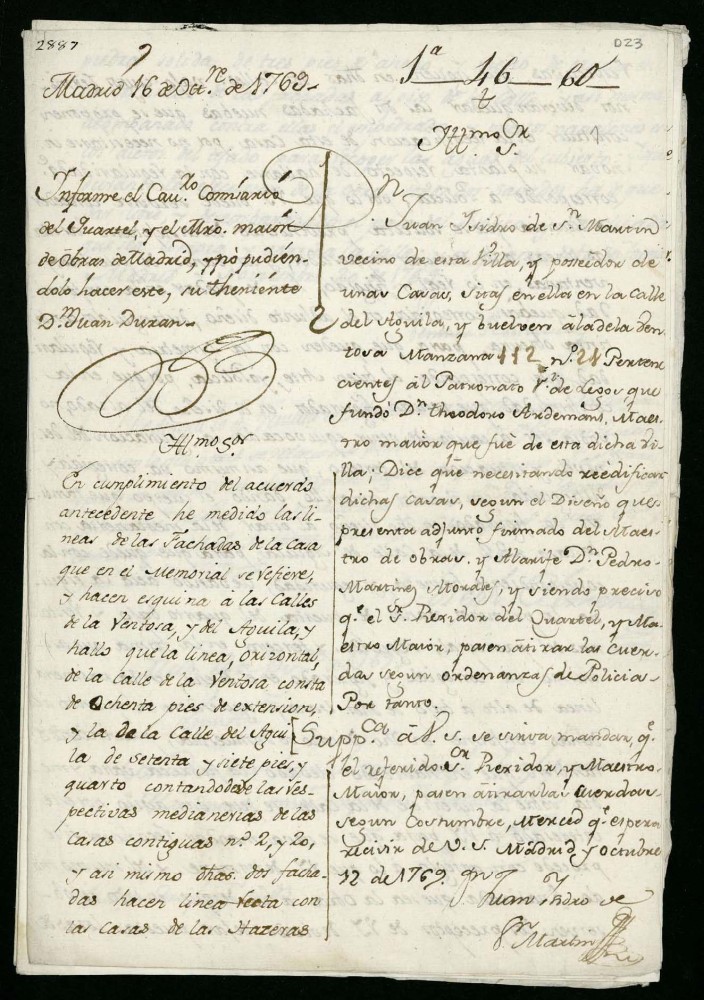 2887
023
1ª 46 60
Madrid 16 de Oct.re de 1769
Informe el Cau.ro Comisario
del Quartel, y el Mro. maior
de Obras de Madrid, y no pudién-
dolo hacer este, su theniénte
D.n Juan Duran
Illmo Sor
En cumplimiento del acuerdo
antecedente he medido las li-
neas de las Fachadas de la Casa
que en el Memorial se refiere,
y hacen esquina á las Calles
de la Ventosa, y del Aguila, y
hallo que la linea, orizontal,
de la Calle de la Ventosa consta
de Ochenta pies de extension,
y la de la Calle del Agui
la de setenta y siete pies, y
quarto contandolas de las res-
pectivas medianerias de las
Casas contiguas n.º 2, y 20,
y asi mismo dhas. dos facha-
das hacen linea recta con
las Casas de las Hazeras
Illmo Sr
D.n Juan Isidro de S.n Martin
vecino de esta Villa, y poseedor de
unas Casas, sitas en ella en la calle
del Aguila, y buelven á la de la Ven
tosa Manzana 112 n.º 21 Perten
cientes ál Patronato R.l de Legos que
fundó D.n theodoro Ardemans, Maes
tro maior que fué de esta dicha Vi
lla; Dice que necesitando reedificar
dichas casas, segun el Diseño que
presenta adjunto firmado del Maes
tro de obras, y Alarife D.n Pedro
Martinez Morales, y siendo preciso
q.e el S.r Rexidor del Quartel, y Ma
estro Maior, pasen á tirar las Cuer
das segun ordenanzas de Policia
Por tanto.
Supp.ca á V. S. se sirva mandar, q.e
el referido S.or Rexidor, y Maestro
Maior, pasen á tirar las Cuerdas
segun Costumbre, Merced q.e espera
recivir de V. S. Madrid y octubre
12 de 1769.
Juan Isidro de
S.n Martin